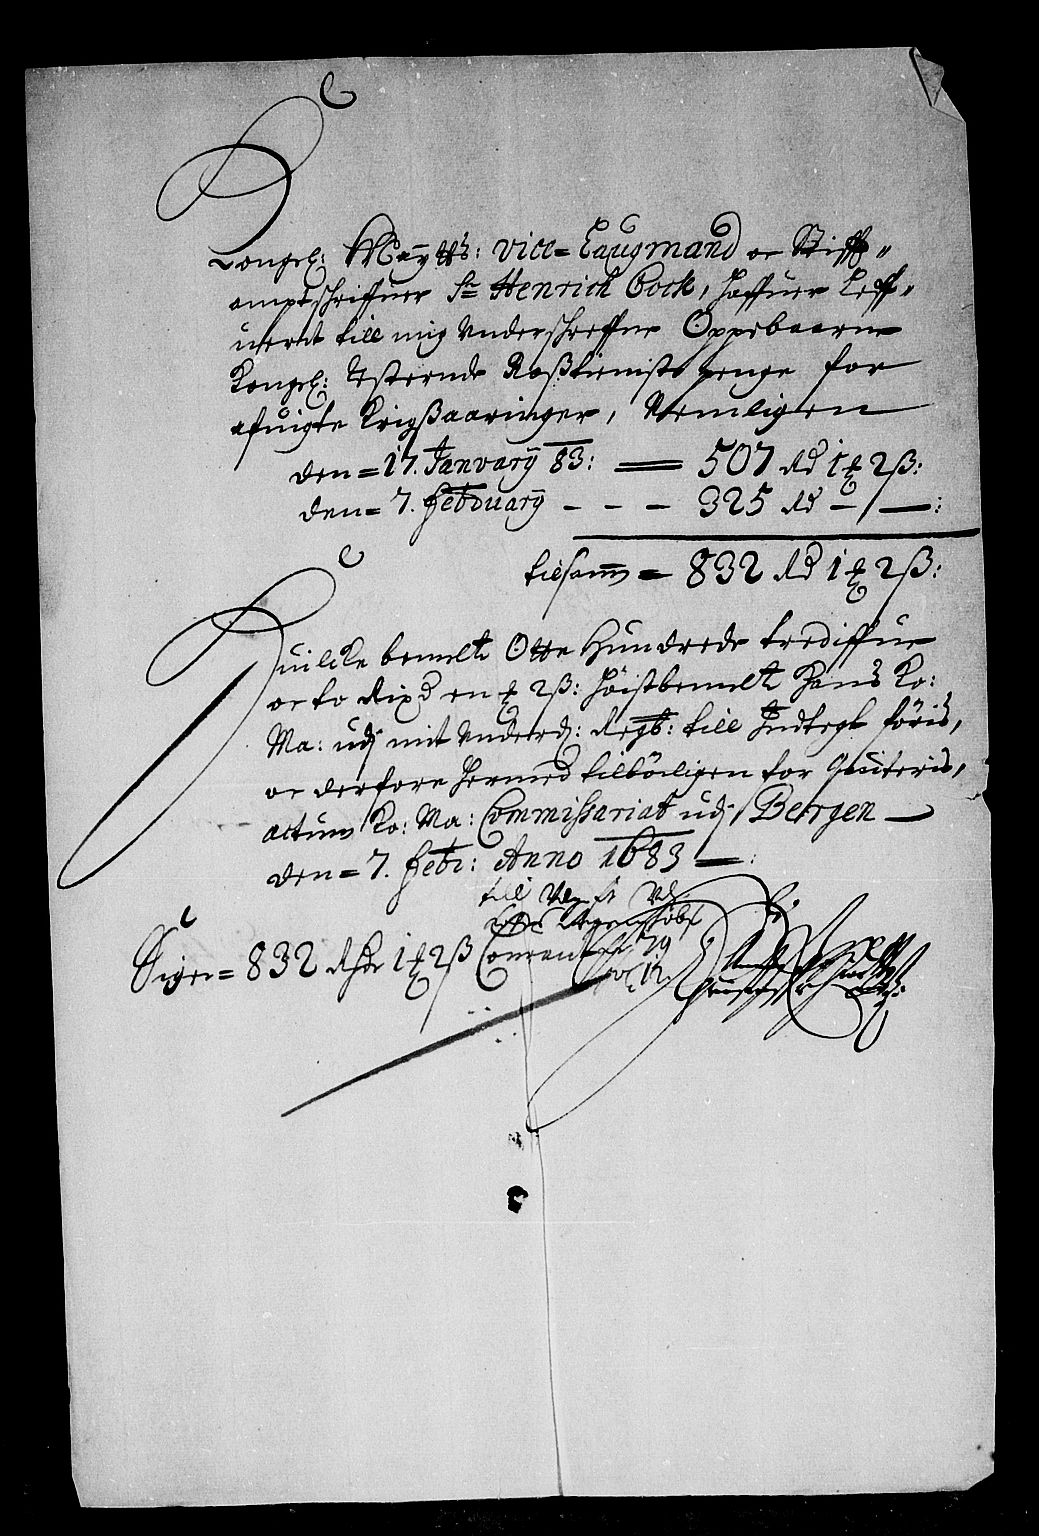 Kongel: Mayttz: vice-Laugmand oc Stiff-
amptschriffuer Sr Henrich Cock, haffuer Leff-
uerit till mig Underschreffne Oppebaarne
Kongel: Resterende Roßtienists penge for
afuigte Krigßaaringer, Nemligen
den = 17. January 83: = 507 Rd 1 ℔ 2 ß:
den = 7. February - - - 325 Rd - / - :
tilsamm = 832 Rd 1 ℔ 2 ß:
Huilcke bemelte Otte Hundrede trediffue
oc to Rixd en ℔ 2 ß: höistbemelte Hans Ko:
Ma: udj mit Underd: Regb: till Indtegt föris,
oc derfore hermed tilbörligen for Quiteris,
actum Ko: Ma: Commissariat udj Bergen
den = 7. Febr: Anno 1683 :
Siger = 832 Rhdr 1 ℔ 2 ß